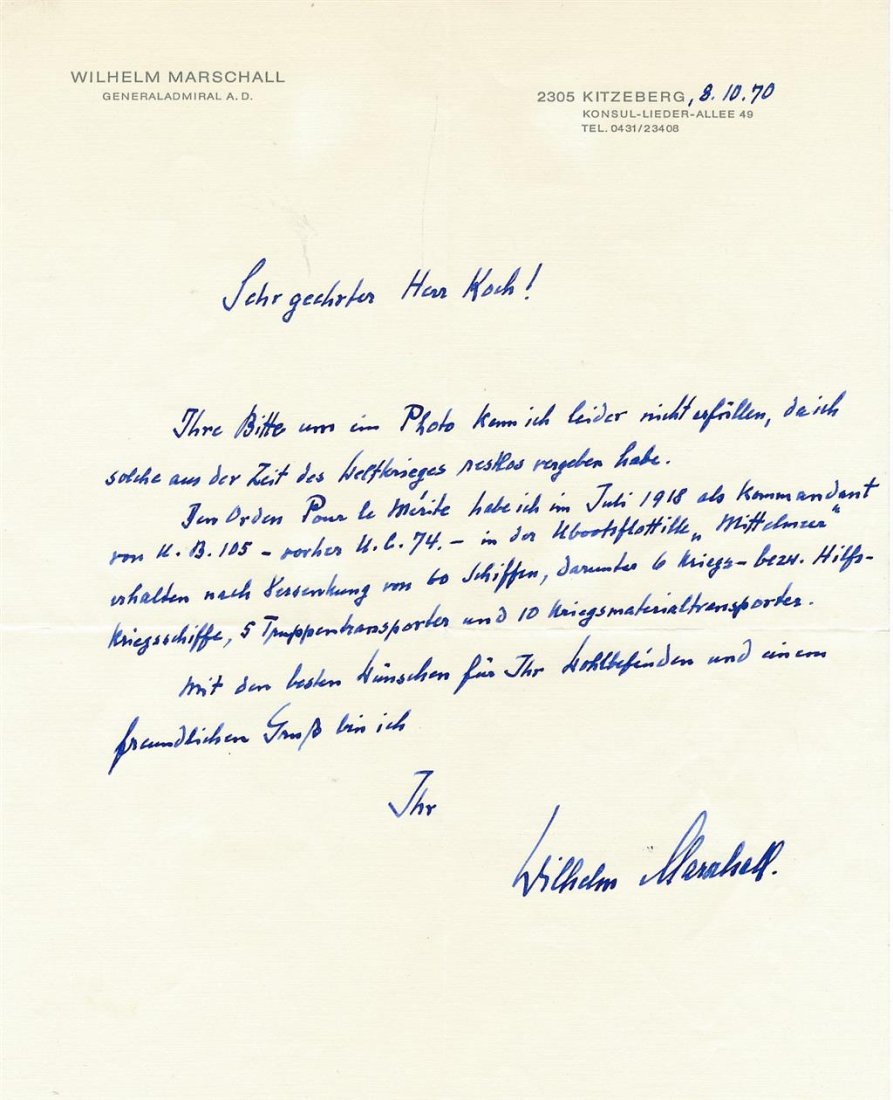 WILHELM MARSCHALL
GENERALADMIRAL A. D.
2305 KITZEBERG, 8. 10. 70
KONSUL-LIEDER-ALLEE 49
TEL. 0431/23408
Sehr geehrter Herr Koch!
Ihre Bitte um ein Photo kann ich leider nicht erfüllen, da ich
solche aus der Zeit des Weltkrieges restlos vergeben habe.
Den Orden Pour le Mérite habe ich im Juli 1918 als Kommandant
von U. B. 105 - vorher U. C. 74. - in der Ubootsflottille „Mittelmeer“
erhalten nach Versenkung von 60 Schiffen, darunter 6 Kriegs- bezw. Hilfs-
kriegsschiffe, 5 Truppentransporter und 10 Kriegsmaterialtransporter.
Mit den besten Wünschen für Ihr Wohlbefinden und einem
freundlichen Gruß bin ich
Ihr
Wilhelm Marschall.